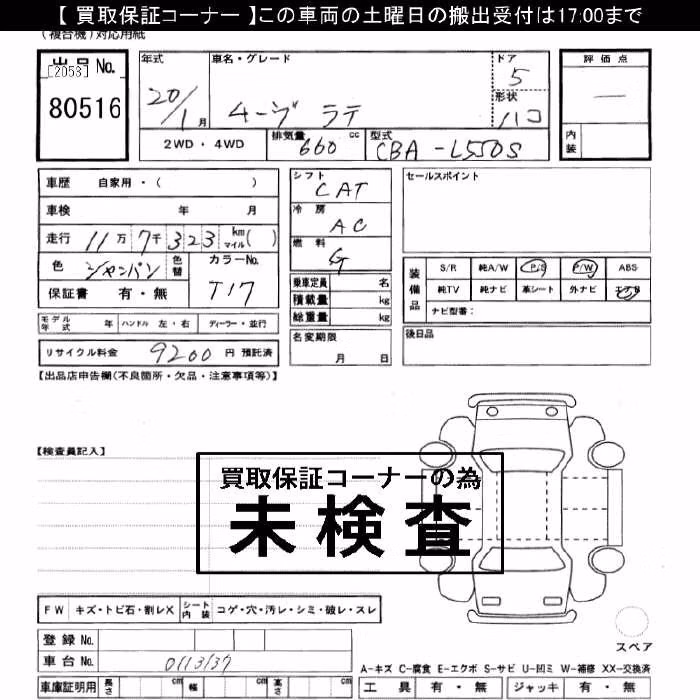 【 買取保証コーナー 】この車両の土曜日の搬出受付は17:00まで
(複合機)対応用紙
出品 No.
[2053]
80516
年式
20/1月
車名・グレード
ムーヴ ラテ
ドア
5
形状
ハコ
評価点
—
内装
2WD・4WD
排気量 660 cc
型式 CBA-L550S
車歴 自家用・( )
車検 年 月
走行 11万7千323 km マイル( )
色 シャンパン 色替
カラーNo. T17
保証書 有・無
シフト CAT
冷房 AC
燃料 G
乗車定員 名
積載量 kg
総重量 kg
セールスポイント
装備品
S/R 純A/W P/S P/W ABS
純TV 純ナビ 革シート 外ナビ エアB
ナビ型番:
モデル年式 年 ハンドル 左・右 ディーラー・並行
名変期限
月 日
後日品
リサイクル料金 9200 円 預託済
【出品店申告欄(不良箇所・欠品・注意事項等)】
【検査員記入】
買取保証コーナーの為
未検査
FW キズ・トビ石・割レX シート内装 コゲ・穴・汚レ・シミ・破レ・スレ
登録 No.
車台 No. 0113137
スペア
A-キズ C-腐食 E-エクボ S-サビ U-凹ミ W-補修 XX-交換済
車庫証明用 長さ cm 幅 cm 高さ cm
工具 有・無 ジャッキ 有・無